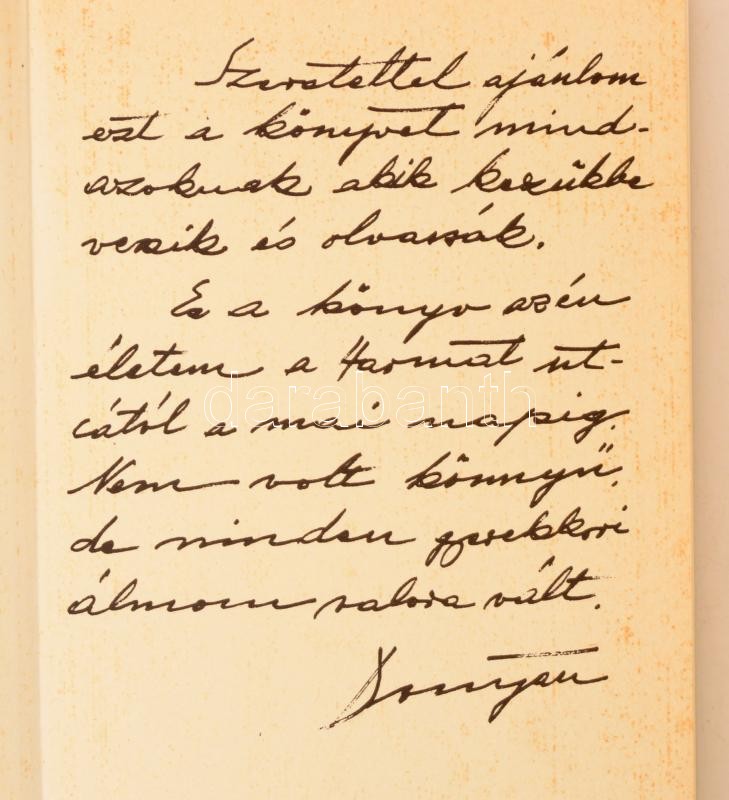 Szeretettel ajánlom
ezt a könyvet mind-
azoknak akik kezükbe
veszik és olvassák.
Ez a könyv azén
életem a Harmat ut-
cától a mai napig.
Nem volt könnyű,
de minden gyerekkori
álmom valora vált.
darabanth